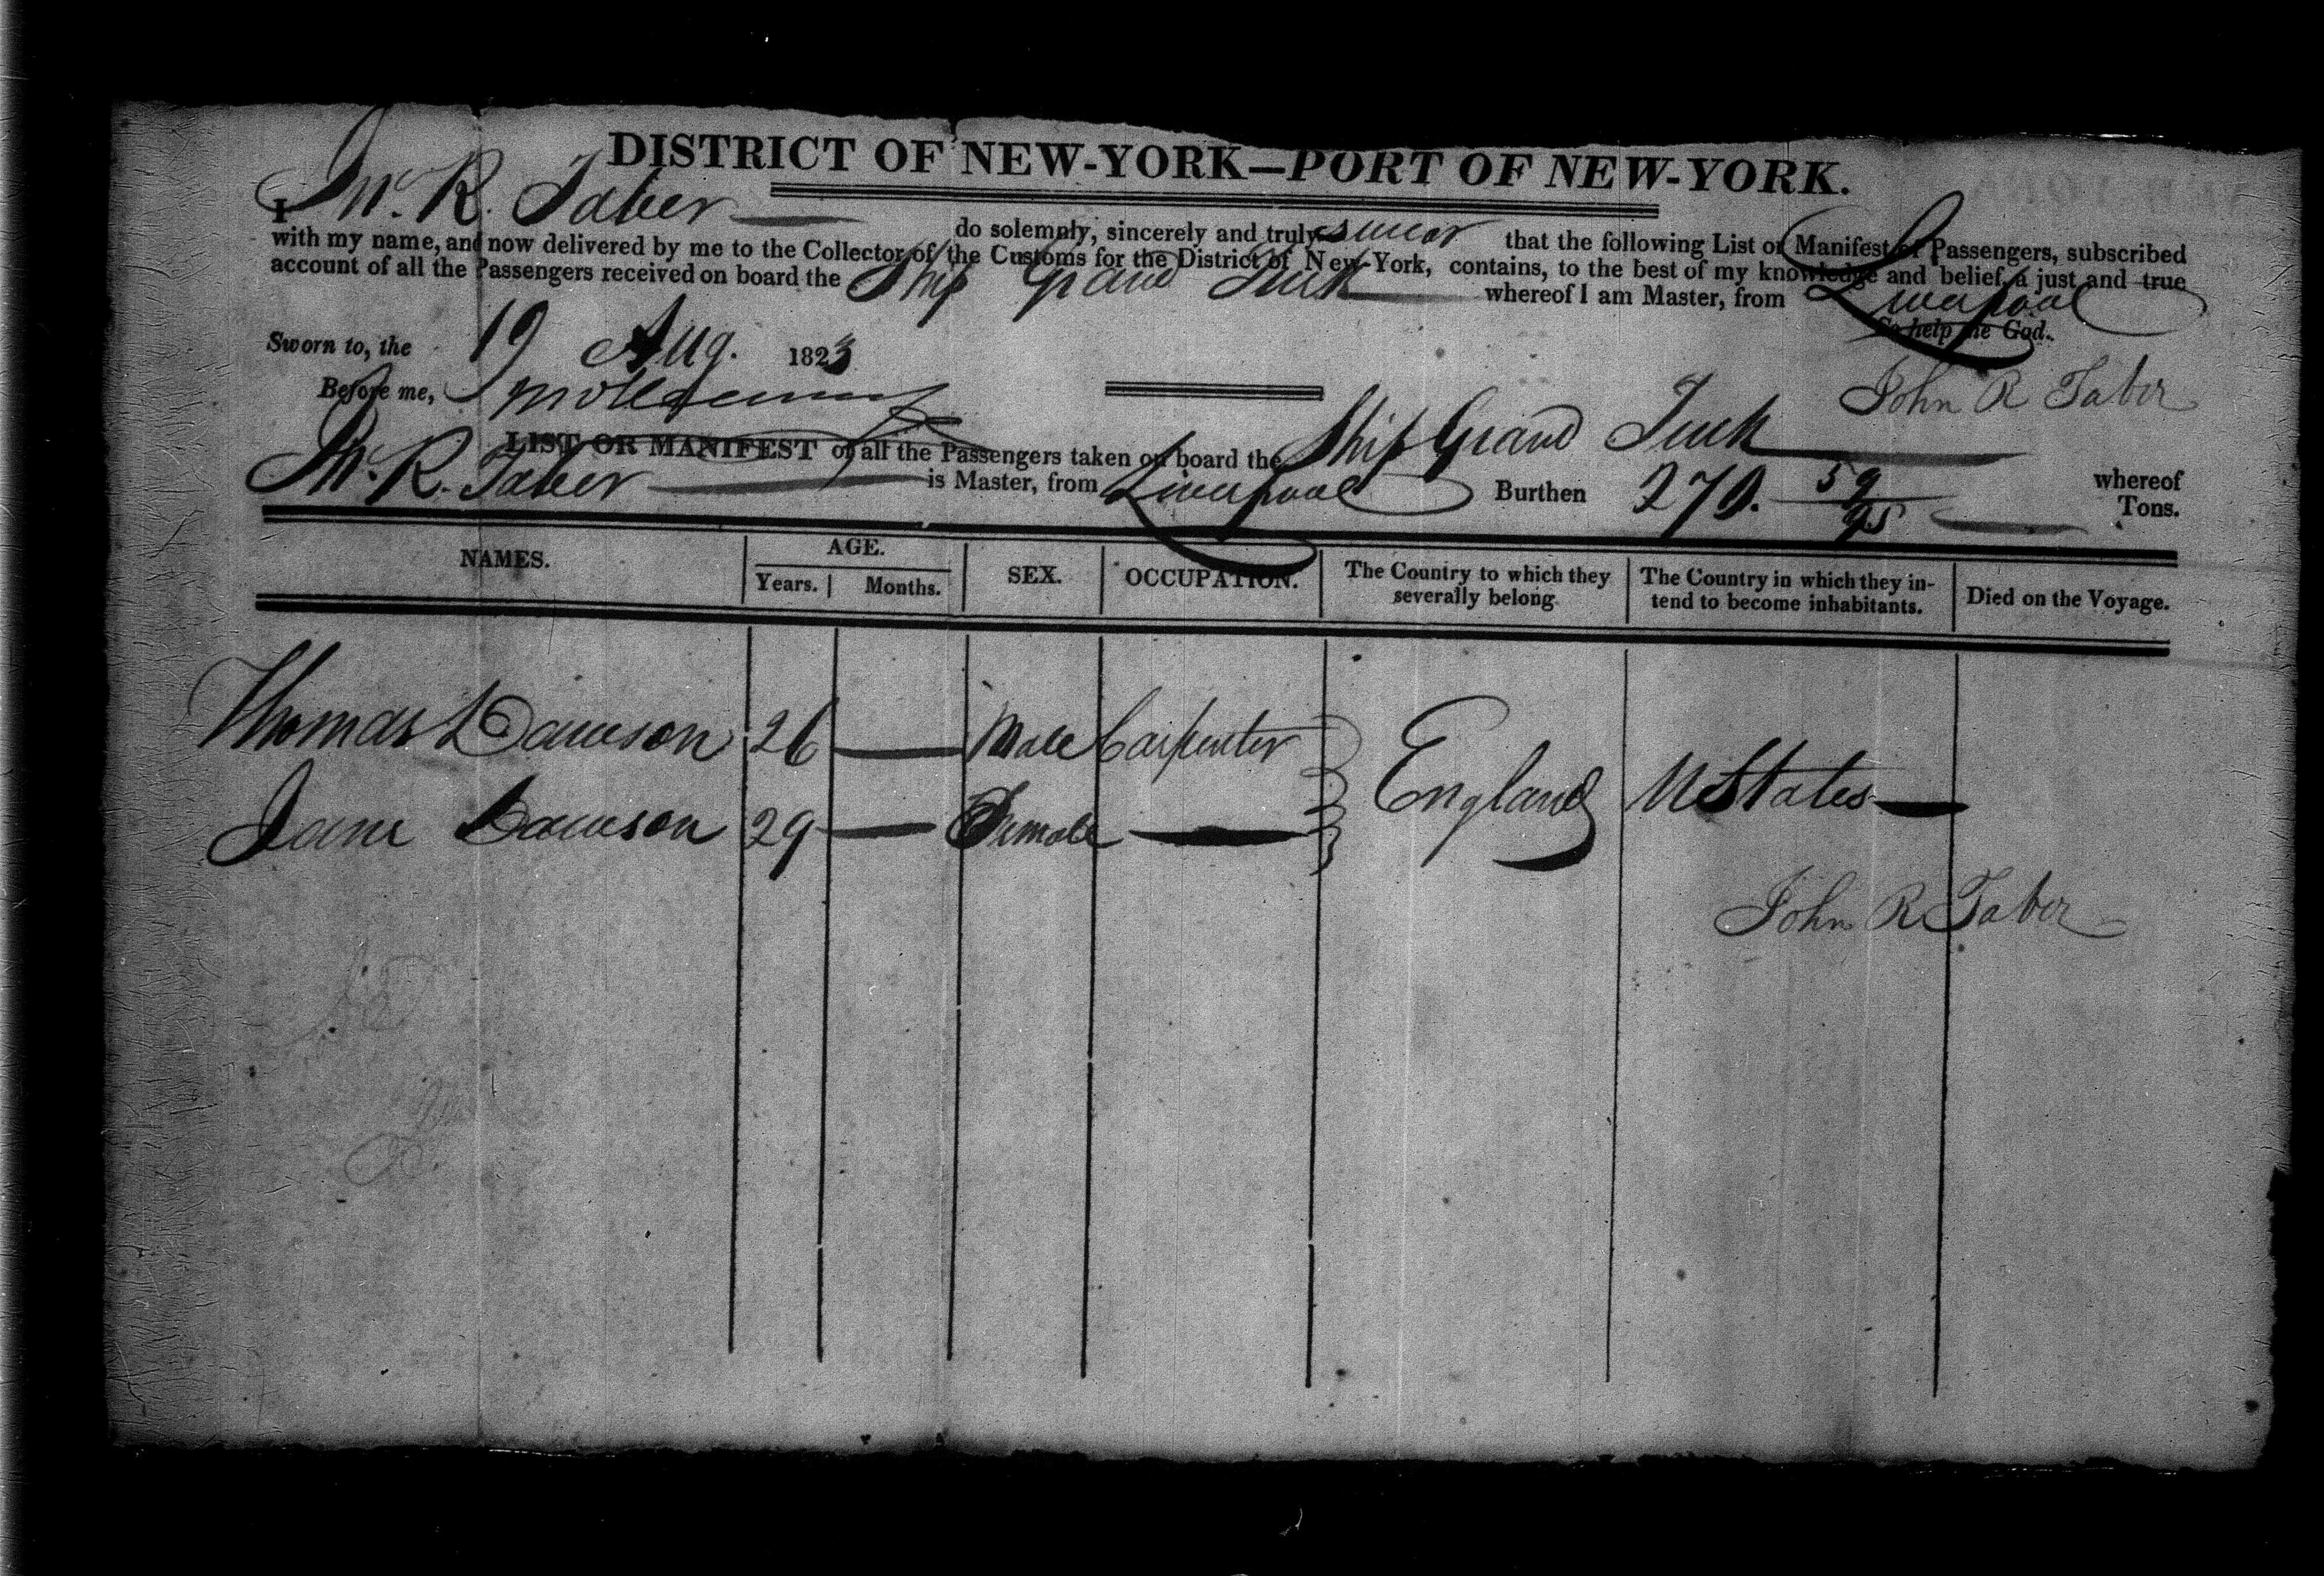 DISTRICT OF NEW-YORK—PORT OF NEW-YORK.
I Jn°. R. Taber do solemnly, sincerely and truly swear that the following List or Manifest of Passengers, subscribed
with my name, and now delivered by me to the Collector of the Customs for the District of New-York, contains, to the best of my knowledge and belief, a just and true
account of all the Passengers received on board the Ship Grand Turk whereof I am Master, from Liverpool
So help me God.
Sworn to, the 19 Aug. 1823
Before me,
John R Taber
LIST OR MANIFEST of all the Passengers taken on board the Ship Grand Turk whereof
Jn°. R. Taber is Master, from Liverpool Burthen 270. 59/95 Tons.
NAMES. AGE. SEX. OCCUPATION. The Country to which they severally belong. The Country in which they in-tend to become inhabitants. Died on the Voyage.
Years. Months.
Thomas Dawson 26 — Male Carpenter England UStates —
Jane Dawson 29 — Female —
John R Taber